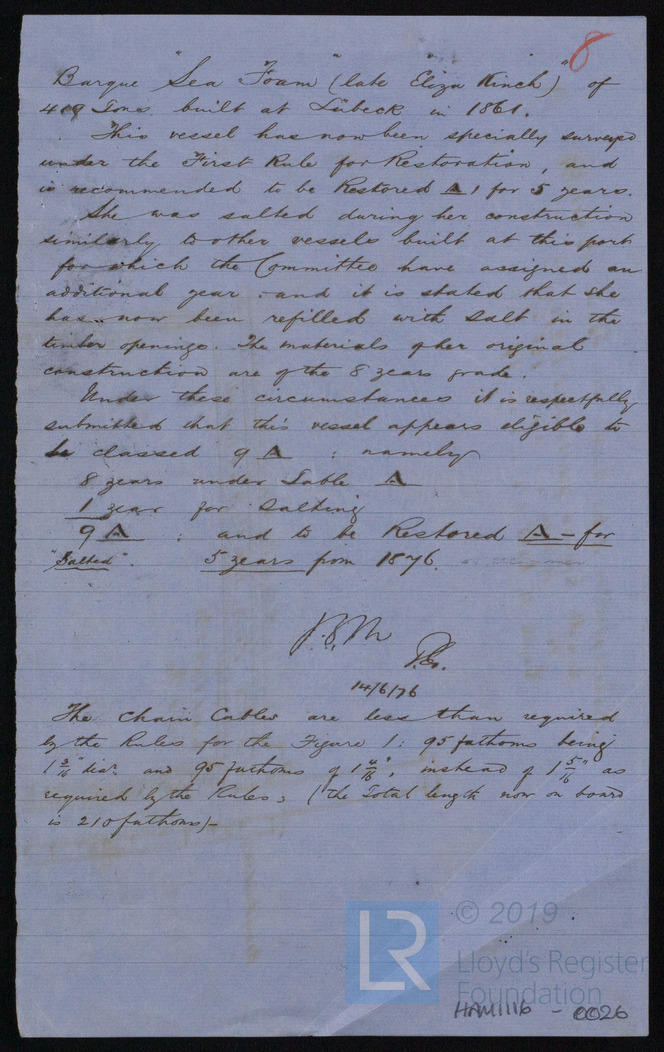 8
Barque "Sea Foam" (late Eliza Kinch) of
419 Tons built at Lübeck in 1861.
This vessel has now been specially surveyed
under the First Rule for Restoration, and
is recommended to be Restored A 1 for 5 years.
She was salted during her construction
similarly to other vessels built at this port
for which the Committee have assigned an
additional year: and it is stated that she
has now been refilled with salt in the
timber openings. The materials of her original
construction are of the 8 years grade.
Under these circumstances it is respectfully
submitted that this vessel appears eligible to
be classed 9 A : namely
8 years under Table A
1 year for Salting
9 A : and to be Restored A - for
"Salted". 5 years from 1876.
14/6/76
The Chain Cables are less than required
by the Rules for the Figure 1: 95 fathoms being
1 3/16" diar. and 95 fathoms of 1 4/16", instead of 1 5/16" as
required by the Rules, (the Total length now on board
is 210 fathoms)-
LR © 2019
Lloyd's Register
Foundation
HAM1116 - 0026